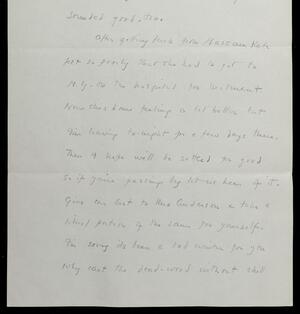 sounded good. Too.
After getting back from Kate
got so poorly that she had to get to
N.Y. to the hospital for treatment
Now she's home feeling a lot better but
I'm leaving to-night for a few days there.
Then I hope will be settled for good
So if you're passing by let us hear of it.
Give our best to Mrs Anderson & take a
liberal portion of the same for yourself.
I'm sorry its been a bad winter for you
Why cant the dead-wood without